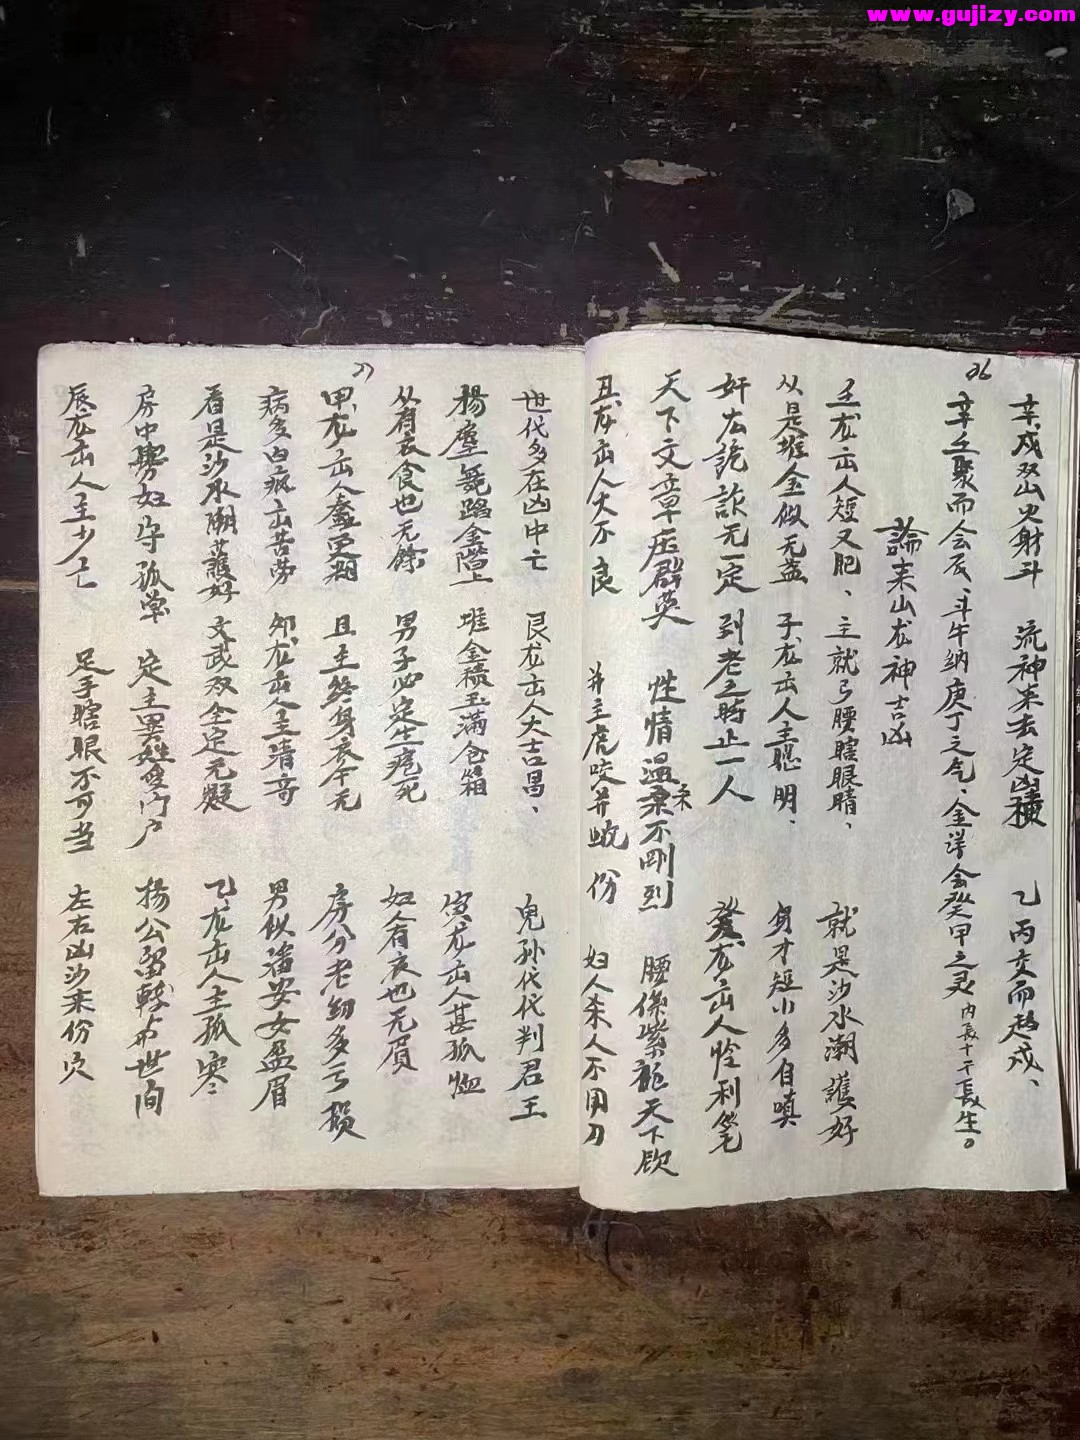 www.gujizy.com
26
辛戍双山火射斗 流神来去定凶横 乙丙交而趋戍、
辛壬聚而会辰、斗牛纳庚丁之气、金详会癸甲之灵 内長十干長生。
論来山龙神吉凶
壬龙出人短又肥、主就弓腰瞎眼睛、就是沙水潮護好
从是堆金似无盏 子龙出人主聪明、身才短小多自嗔
奸左詭詐无一定 到老之時止一人 癸龙出人怜利笔
天下文章压群英 性情温柔不刚烈 腰係紫龍天下欽
丑龙出人大不良 并主虎咬并蛇份 妇人杀人不用刀
27
世代多在凶中亡 艮龙出人大吉昌、兒孙代代判君王
楊 金階上 堆金積玉满仓箱 寅龙出人甚孤恤
从有衣食也无餘 男子必定生疮死 妇人有衣也无眉
甲龙出人 且主终身衣下无 房分老幼多亏损
病多白疯出苦劳 卯龙出人主清奇 男似潘安女盈眉
看是沙水潮護好 文武双全定无疑 乙龙出人主孤寒
房中 妇守孤单 定主異姓 门户 楊公留 世间
辰龙出人主少亡 足手瞎眼不可当 左右凶沙来份